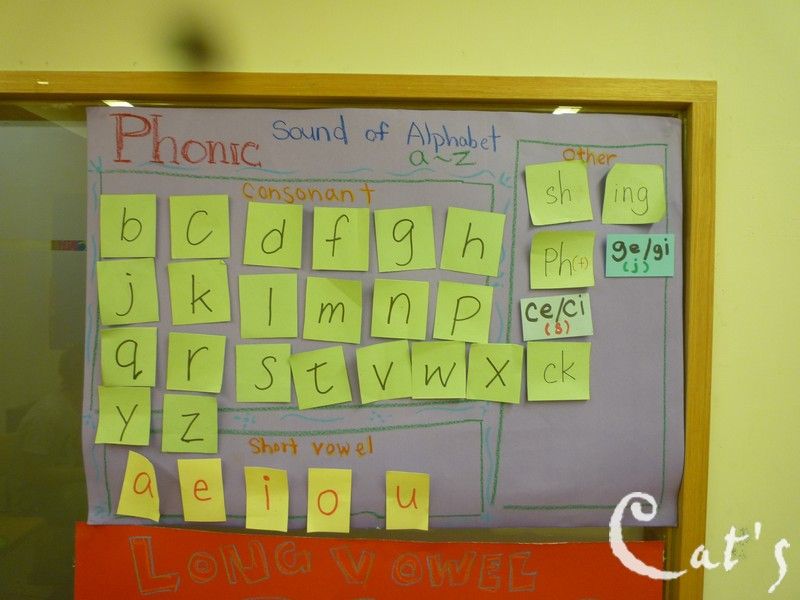 Phonic
Sound of Alphabet
a~z
consonant
b c d f g h
j k l m n p
q r s t v w x
y z
Short vowel
a e i o u
other
sh ing
Ph(f) ge/gi
(j)
ce/ci
(s)
ck
LONG VOWEL
Cat's